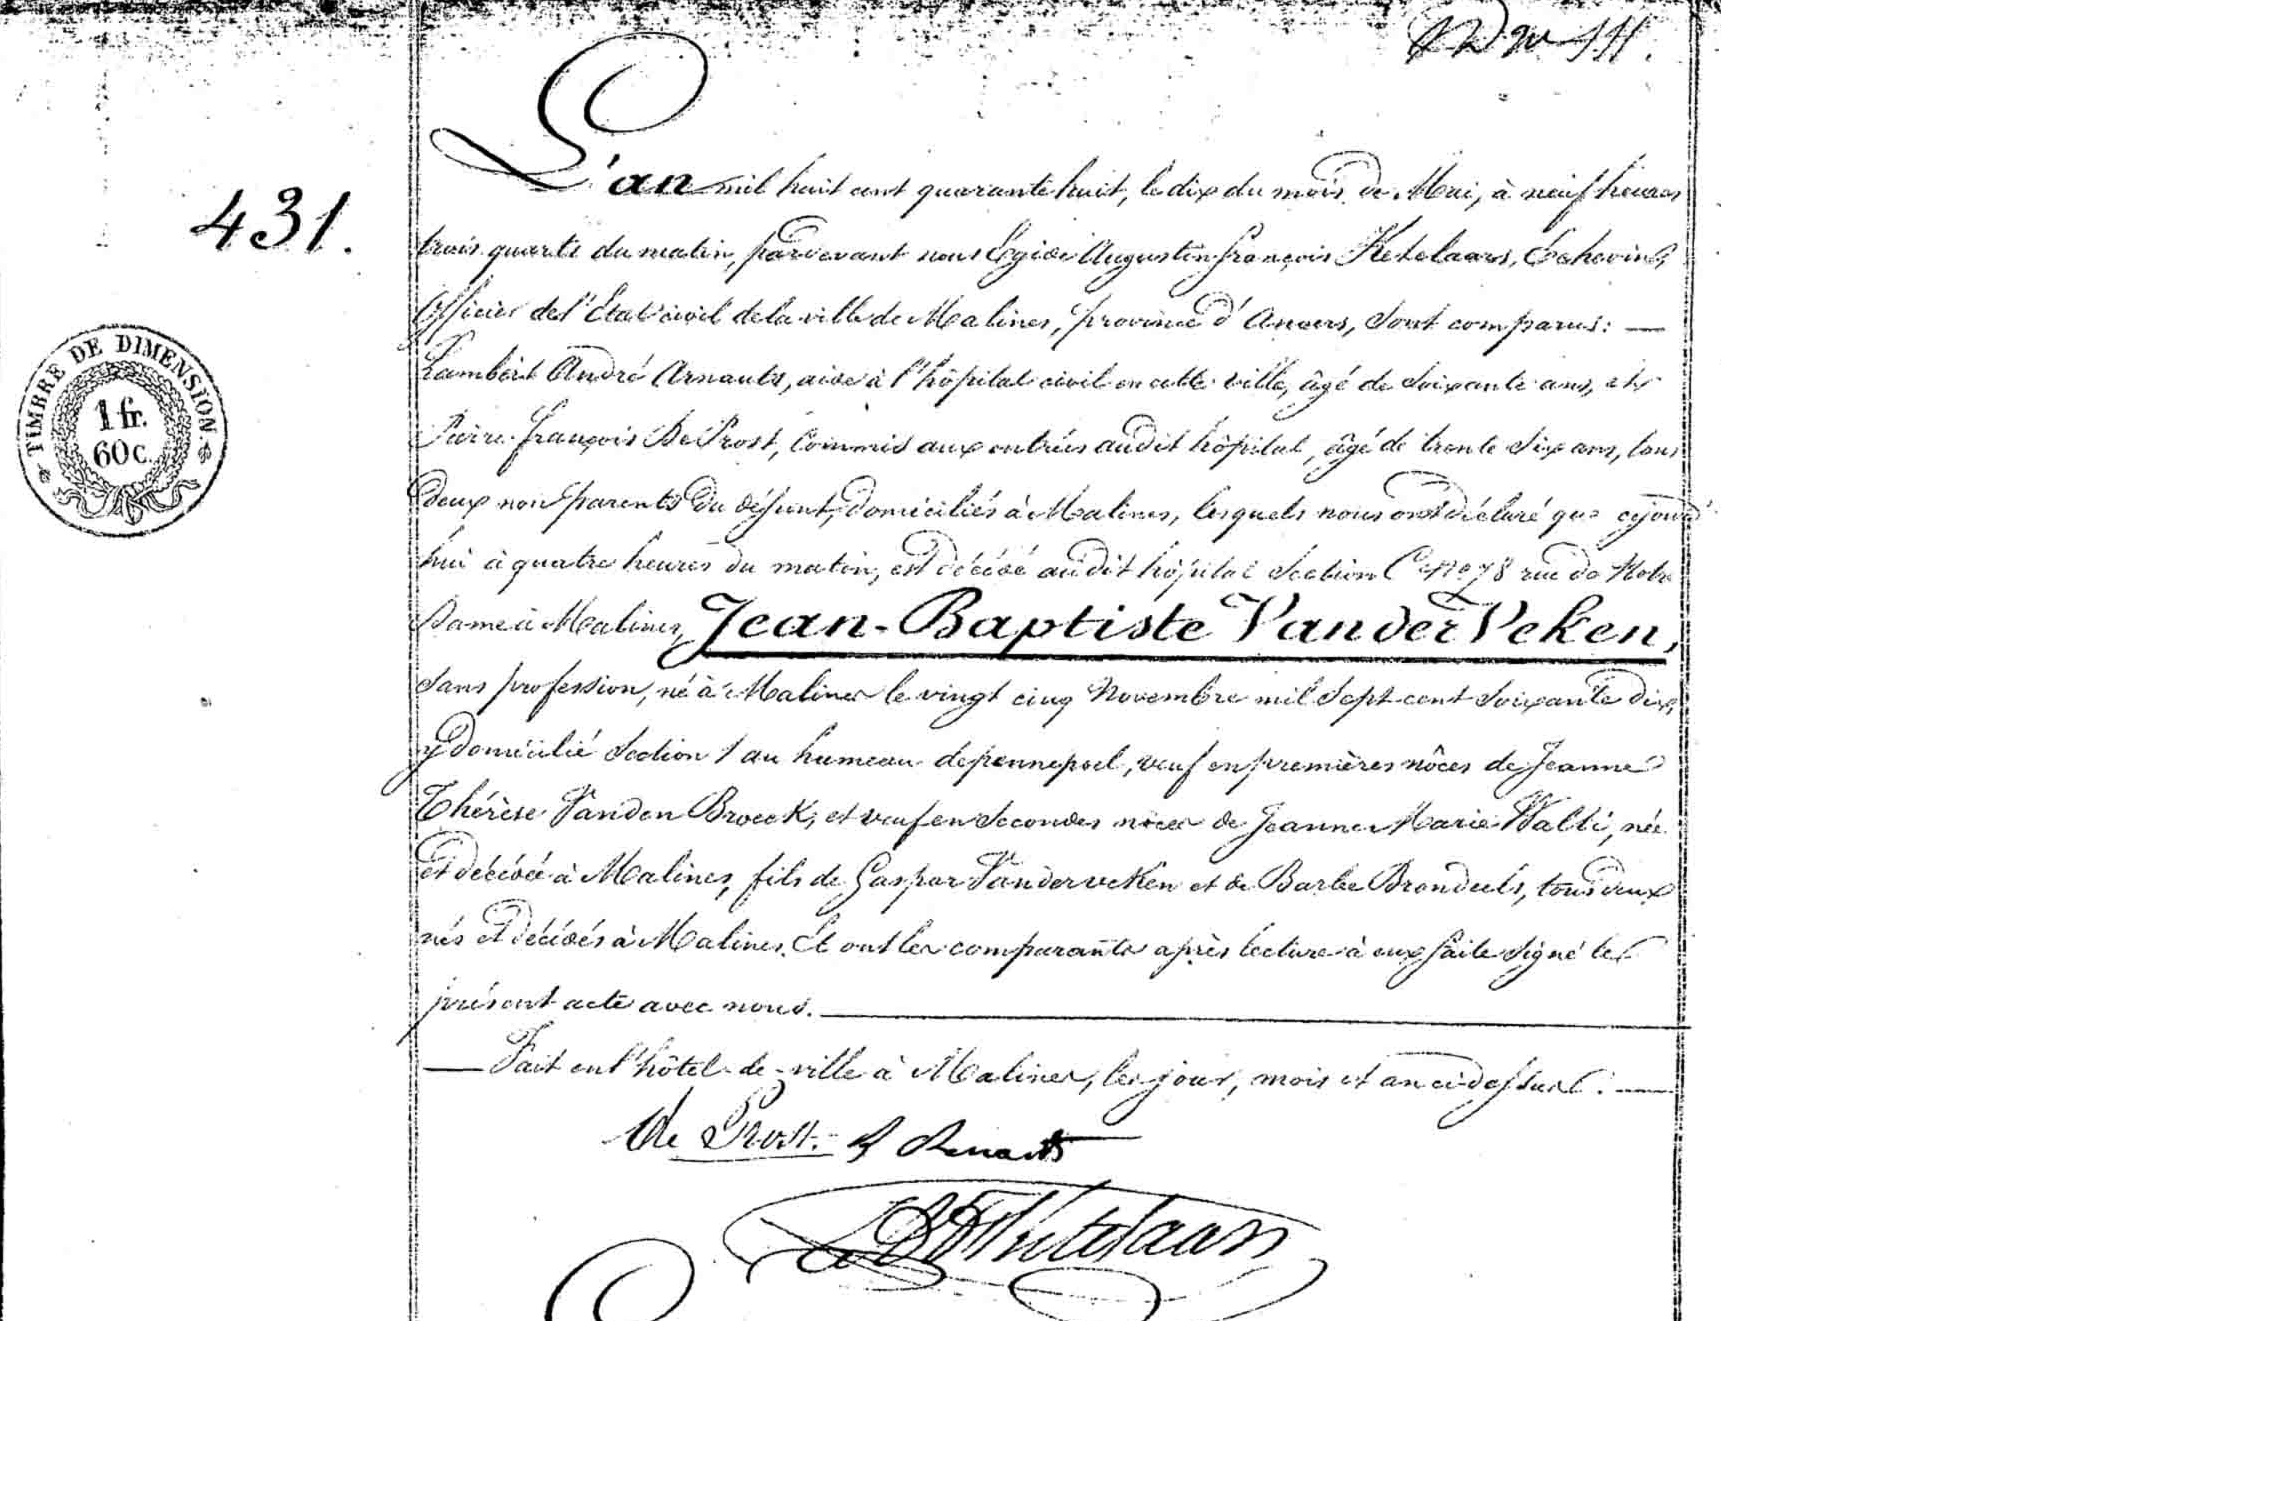 431.
TIMBRE DE DIMENSION.
1 fr.
60 c.
L'an mil huit cent quarante huit, le dix du mois de Mai, à neuf heures
trois quarts du matin, pardevant nous Egide Augustin François Ketelaars, Echevin,
Officier de l'Etat civil de la ville de Malines, province d'Anvers, sont comparus: —
Lambert André Arnauts, aide à l'hôpital civil en cette ville, âgé de soixante ans, et
Pierre François De Prost, Commis aux entrées audit hôpital, âgé de trente six ans, tous
deux non parents du défunt, domiciliés à Malines, lesquels nous ont déclaré que cejourd'
hui à quatre heures du matin, est décédé audit hôpital Section C No 78 rue de Notre
Dame à Malines, Jean-Baptiste Vander Veken,
sans profession, né à Malines le vingt cinq Novembre mil sept cent soixante dix,
y domicilié Section 1 au hameau de pennepoel, veuf en premières nôces de Jeanne
Thérèse Vanden Broeck, et veuf en secondes nôces de Jeanne Marie, née
et décédée à Malines, fils de Gaspar Vanderveken et de Barbe, tous deux
nés et décédés à Malines. Et ont les comparants après lecture à eux faite signé le
présent acte avec nous.
— Fait en l'hôtel-de-ville à Malines, les jour, mois et an ci dessus. —
De Prost.
Ketelaars